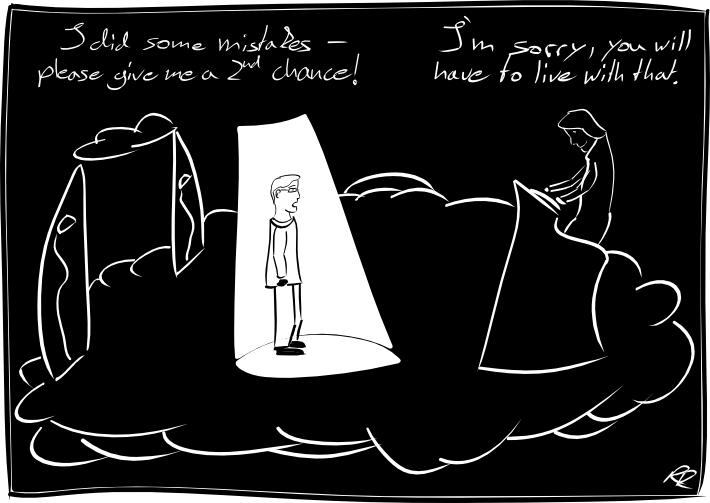 I did some mistakes –
please give me a 2nd chance!
I'm sorry, you will
have to live with that.